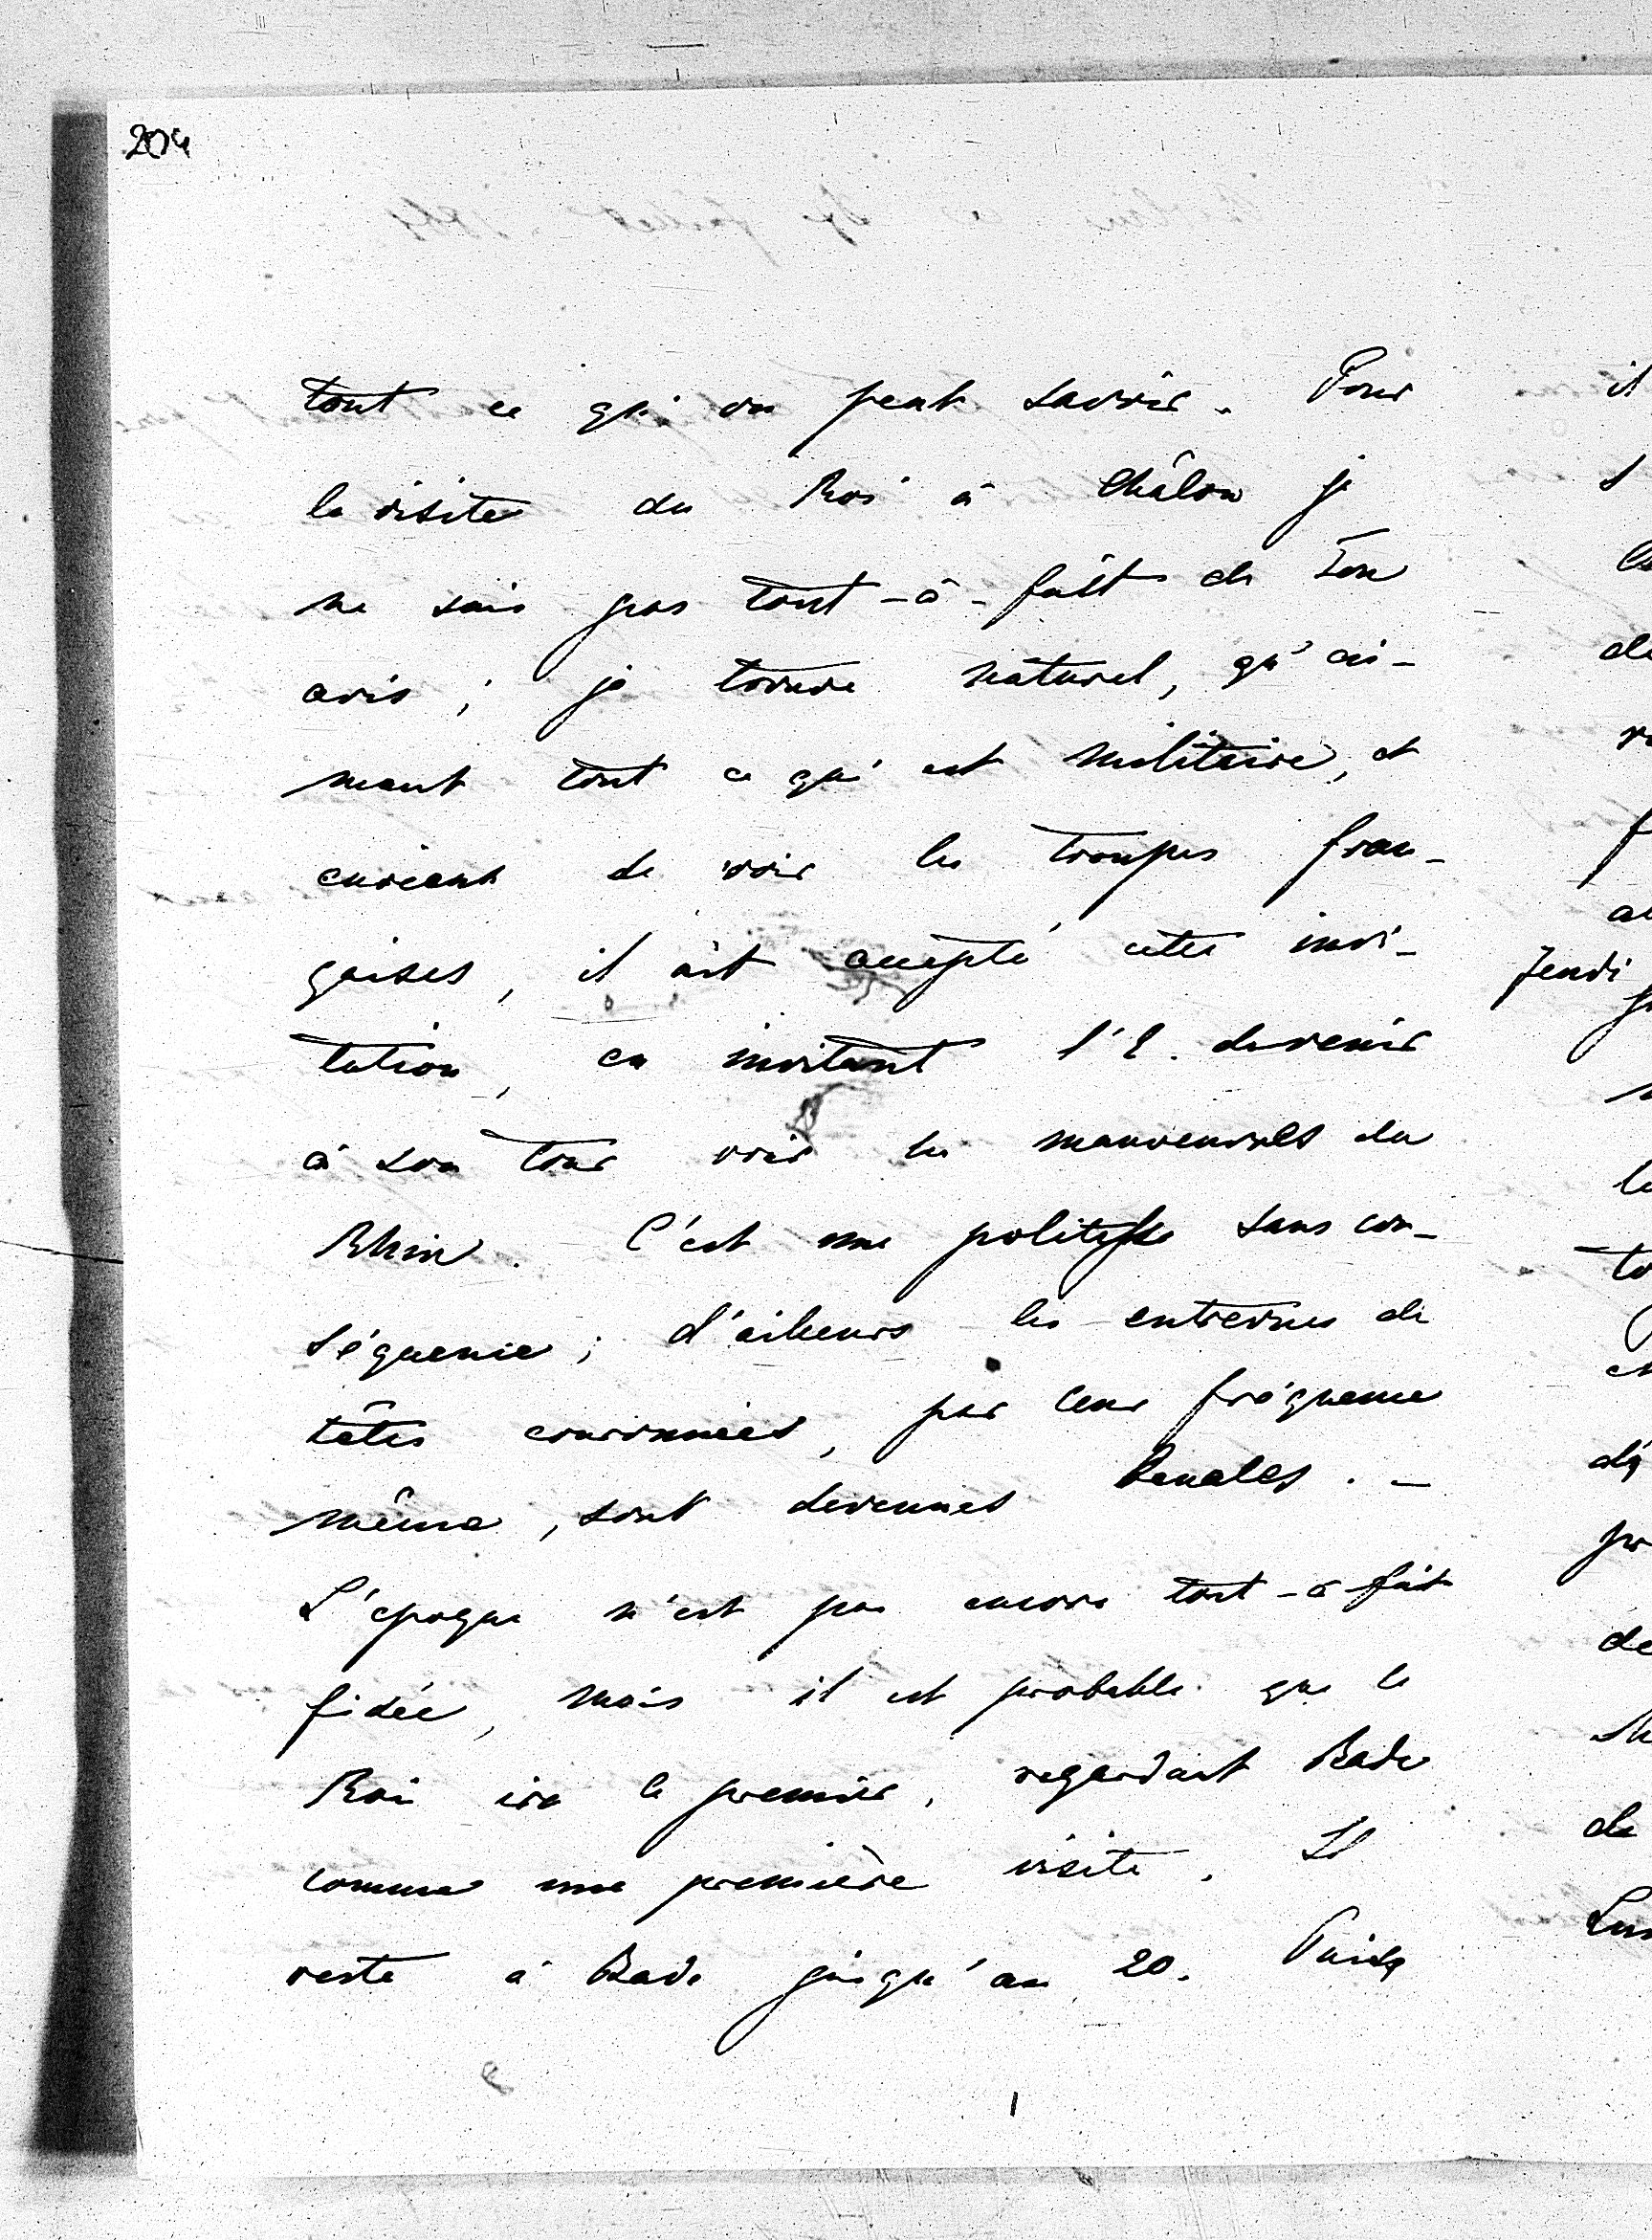 204
tout ce qu'on peut savoir. Pour
la visite du Roi à Châlon je
ne suis pas tout-à-fait de Ton
avis; je trouve naturel, qu'ai-
mant tout ce qui est militaire, et
curieux de voir les troupes fran-
çaises, il ait accepté cette invi-
tation, en invitant l'E. de venir
à son tour voir les manoeuvres du
Rhin. C'est une politesse sans con-
séquence; d'ailleurs les entrevues de
têtes couronnées, par leur fréquence
même, sont devenues banales. –
L'époque n'est pas encore tout-à-fait
fixée, mais il est probable que le
Roi ira le premier, regardant Bade
comme une première visite. Il
reste à Bade jusqu'au 20. Puis
Jeudi